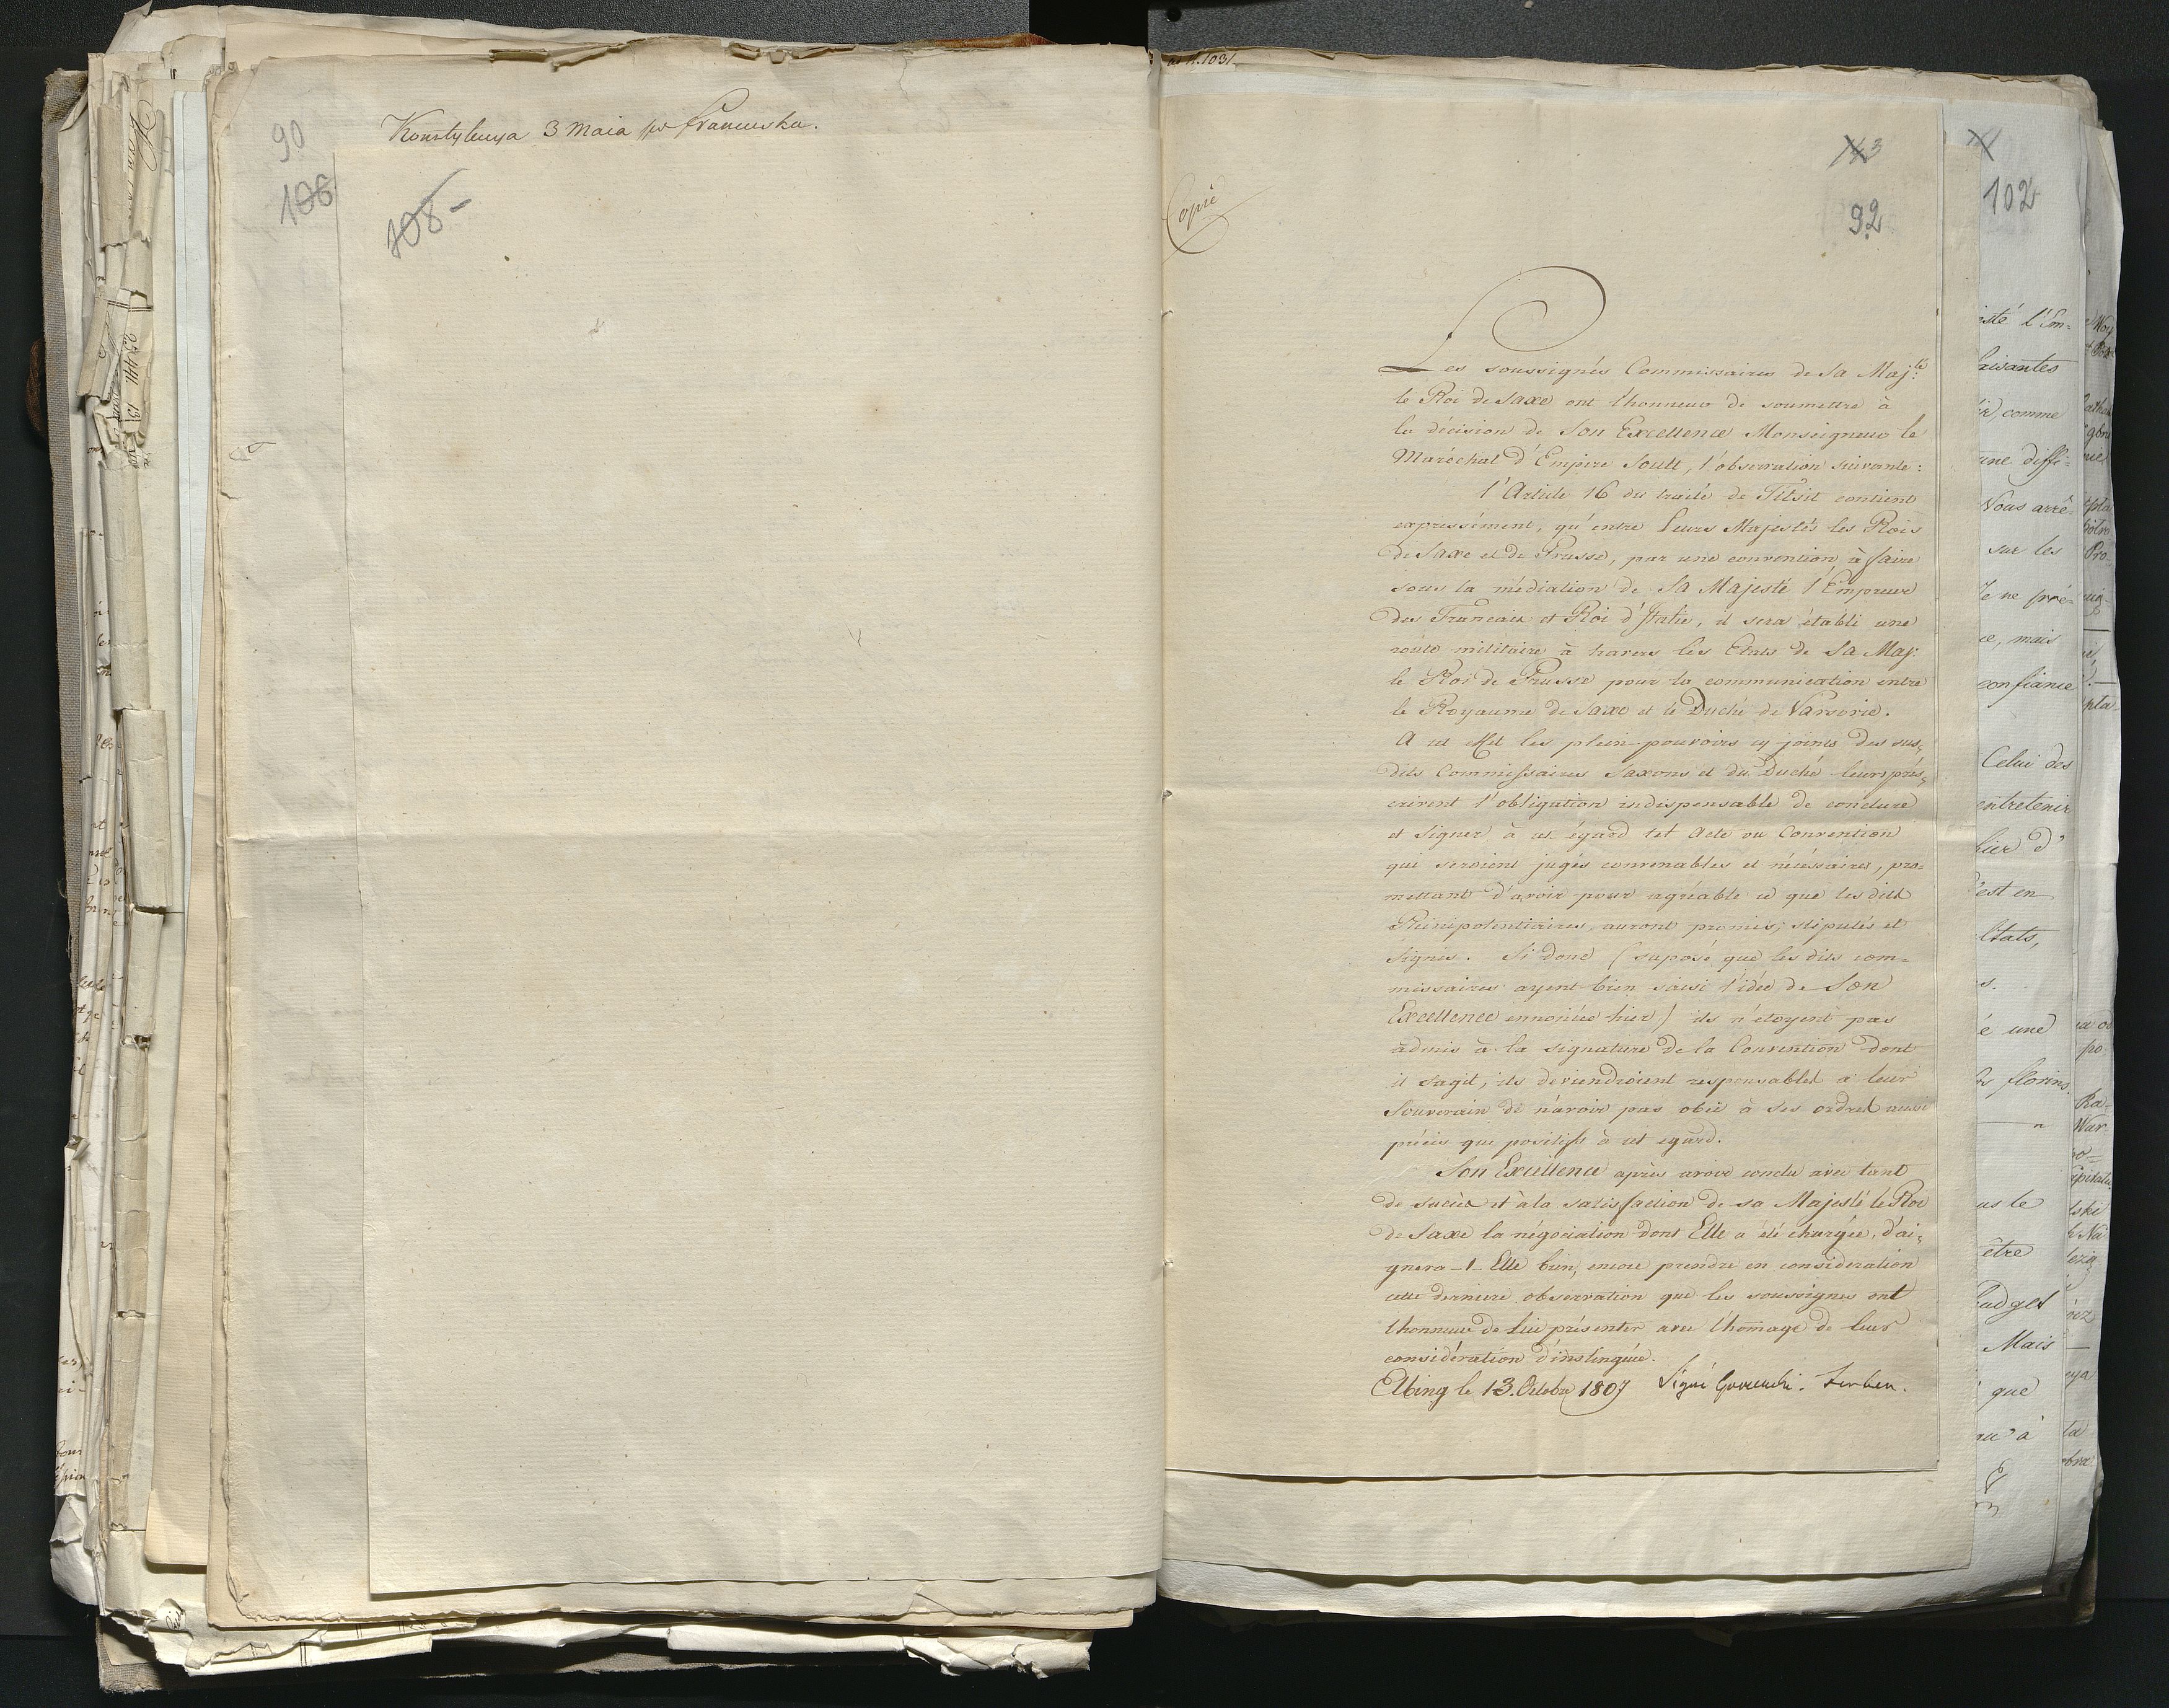 90
106
Konstytucya 3 Maia po francusku.
108-
ad N. 1031
Copie
3
92
102
Les soussignés Commissaires de Sa Maj:té
le Roi de Saxe ont l'honneur de soumettre à
la décision de Son Excellence Monseigneur le
Maréchal d'Empire Soult, l'observation suivante:
l'Article 16 du traité de Tilsit contient
expressément, qu'entre Leurs Majestés les Rois
de Saxe et de Prusse, par une convention à faire
sous la médiation de Sa Majesté l'Empreur
des Francais et Roi d'Italie, il sera établi une
route militaire à travers les Etats de Sa Maj:
le Roi de Prusse pour la communication entre
le Royaume de Saxe et le Duché de Varsovie.
A cet effet les plein-pouvoirs cy joints des sus-
dits Commissaires Saxons et du Duché leurs prés-
crivent l'obligation indispensable de conclure
et signer à cet égard tel Acte ou Convention
qui seroient jugés convenables et nécéssaires, pro-
mettant d'avoir pour agréable ce que les dits
Plenipotentiaires, auront promis, stipulés et
signés. Si donc (suposé que les dits com-
missaires ayent bien saisi l'idée de Son
Excellence ennoncée hier) ils n'étoyent pas
admis à la signature de la Convention dont
il sagit, ils deviendroient responsables à leur
Souverain de n'avoir pas obéi à ses ordres aussi
précis que positifs à cet egard.
Son Excellence après avoir conclu avec tant
de succès et à la satisfaction de sa Majesté le Roi
de Saxe la négociation dont Elle a été chargée, d'ai-
gnera-t-Elle bien, encore prendre en consideration
cette derniere observation que les soussignes ont
l'honneur de Lui présenter avec l'homage de leur
considération d'instinguée.
Elbing le 13. Octobre 1807 Signé
esté l'Em-
faisantes
comme
une diffi-
Nous arrê-
sur les
Je ne pré-
ce, mais
confiance
Celui des
entretenir
hier d'
est en
ltats,
é une
florins
us le
être
Budget
Mais
que
qu'à